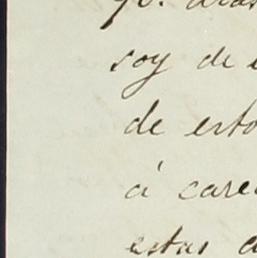 soy de
de esto
á care
estas